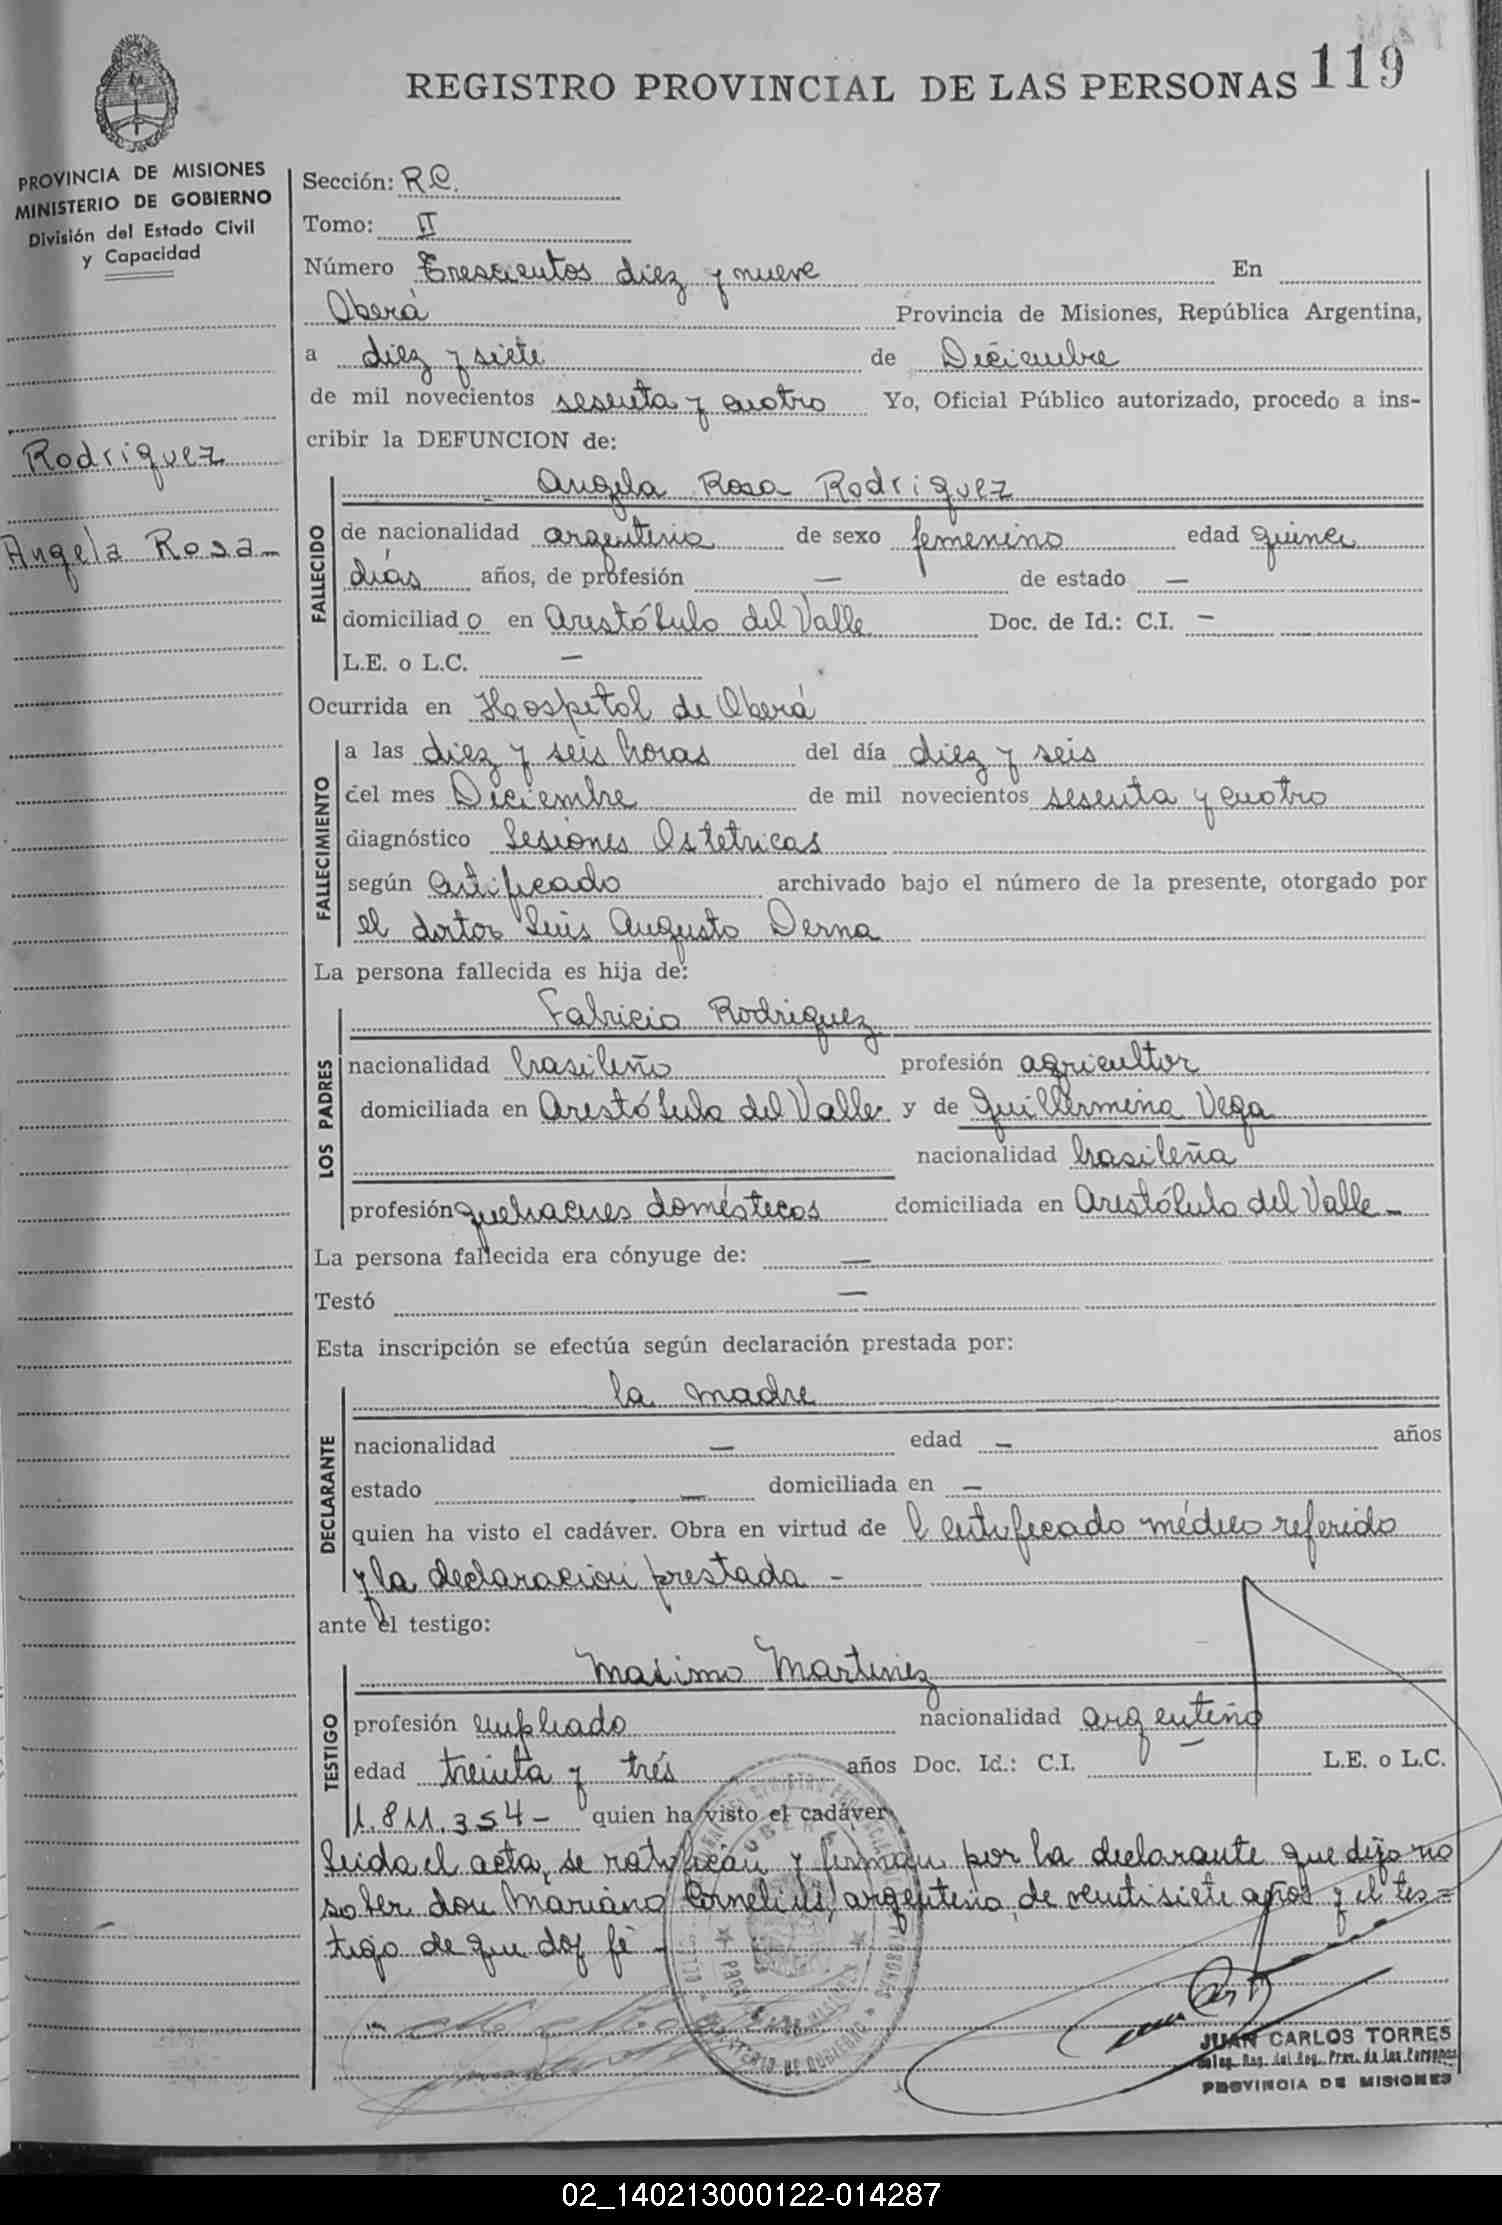 REGISTRO PROVINCIAL DE LAS PERSONAS 119
PROVINCIA DE MISIONES
MINISTERIO DE GOBIERNO
División del Estado Civil
y Capacidad
Rodriguez
Angela Rosa
Sección: R.C.
Tomo: II
Número Trescientos diez y nueve En
Oberá Provincia de Misiones, República Argentina,
a diez y siete de Diciembre
de mil novecientos sesenta y cuatro Yo, Oficial Público autorizado, procedo a ins-
cribir la DEFUNCION de:
FALLECIDO
Angela Rosa Rodriguez
de nacionalidad argentina de sexo femenino edad quince
días años, de profesión — de estado —
domiciliado en Aristóbulo del Valle Doc. de Id.: C.I. —
L.E. o L.C. —
Ocurrida en Hospital de Oberá
FALLECIMIENTO
a las diez y seis horas del día diez y seis
del mes Diciembre de mil novecientos sesenta y cuatro
diagnóstico Lesiones Ostetricas
según certificado archivado bajo el número de la presente, otorgado por
el doctor Luis Augusto Derna
La persona fallecida es hija de:
LOS PADRES
Fabricio Rodriguez
nacionalidad brasileño profesión agricultor
domiciliada en Aristóbulo del Valle y de Guillermina Vega
nacionalidad brasileña
profesión quehaceres domésticos domiciliada en Aristóbulo del Valle —
La persona fallecida era cónyuge de: —
Testó —
Esta inscripción se efectúa según declaración prestada por:
DECLARANTE
la madre
nacionalidad — edad — años
estado — domiciliada en —
quien ha visto el cadáver. Obra en virtud de l certificado médico referido
y la declaración prestada —
ante el testigo:
TESTIGO
Maximo Martinez
profesión empleado nacionalidad argentino
edad treinta y trés años Doc. Id.: C.I. — L.E. o L.C.
1.811.354 — quien ha visto el cadáver
Leida el acta, se ratifican y firman por la declarante que dijo no
saber don Mariano Cornelius, argentino, de veintisiete años y el tes=
tigo de que doy fé —
JUAN CARLOS TORRES
Deleg. Reg. del Reg. Prov. de las Personas
PROVINCIA DE MISIONES
02_140213000122-014287